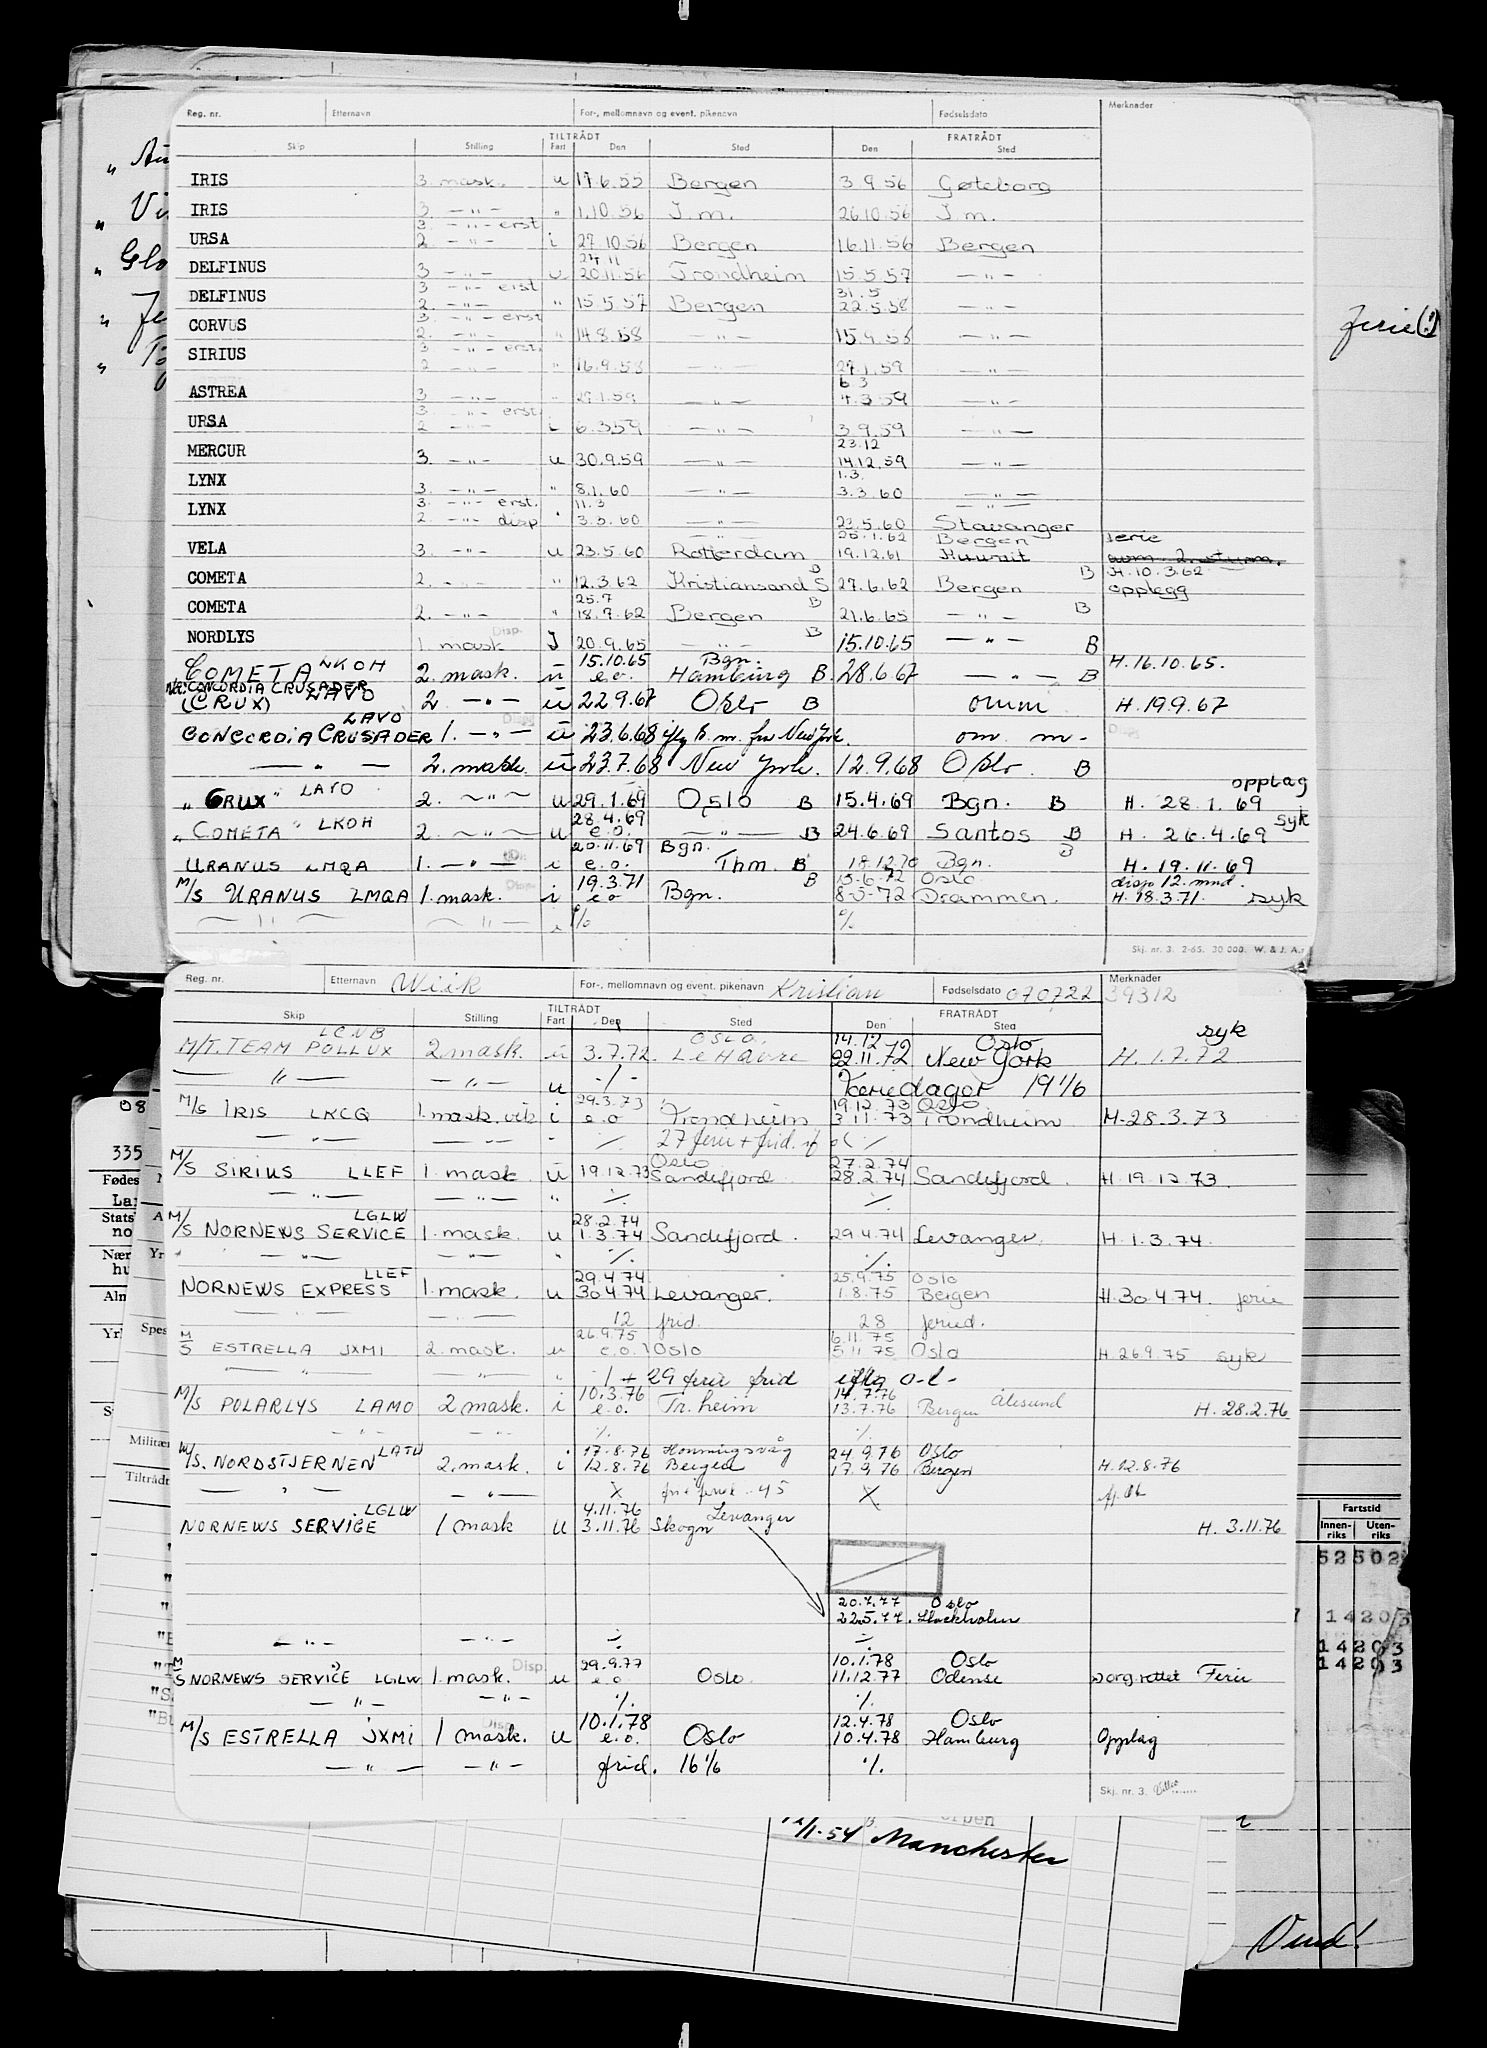 Reg. nr. Etternavn For-, mellomnavn og event. pikenavn Fødselsdato Merknader
TILTRÅDT FRATRÅDT
Skip Stilling Fart Den Sted Den Sted
IRIS 3 mask. u 17.6.55 Bergen 3.9.56 Gøteborg
IRIS 3. — " — " 1.10.56 I.m. 26.10.56 I.m.
3. — " — erst
URSA 2. — " — i 27.10.56 Bergen 16.11.56 Bergen
24.11
DELFINUS 3 — " — u 20.11.56 Trondheim 15.5.57 — " —
3 — " — erst 31.5
DELFINUS 2. — " — " 15.5.57 Bergen 22.5.58 — " —
3. — " — erst
CORVUS 2. — " — " 14.8.58 — " — 15.9.58 — " —
3. — " — erst.
SIRIUS 2 — " — " 16.9.58 — " — 27.1.59 — " —
6 3
ASTREA 3. — " — " 29.1.59 — " — 4.3.59 — " —
3. — " — erst
URSA 2 — " — i 6.3.59 — " — 3.9.59 — " —
23.12
MERCUR 3. — " — u 30.9.59 — " — 14.12.59 — " —
1.3.
LYNX 3. — " — " 8.1.60 — " — 3.3.60 — " —
3. — " — erst. 11.3 — " —
LYNX 2. — " — disp " 3.3.60 — " — 23.5.60 Stavanger
— " — 20.1.62 Bergen ferie
VELA 3. — " — u 23.5.60 Rotterdam 19.12.61 Kuwait
B B H.10.3.62
COMETA 2. — " — " 12.3.62 Kristiansand S 27.6.62 Bergen opplegg
25.7 B
COMETA 2. — " — " 18.9.62 Bergen 21.6.65 — " — B
Disp. B
NORDLYS 1. mask J 20.9.65 — " — 15.10.65 — " — B
LKOH 15.10.65 Bgn. H.16.10.65.
COMETA 2. mask. u e.o. Hamburg B 28.6.67 — " — B
CONCORDIA CRUSADER
(CRUX) LAVO 2. — " — u 22.9.67 Oslo B omm H.19.9.67
LAVO Disp
CONCORDIA CRUSADER 1. — " — u 23.6.68 iflg B.m. fra New York. om. m-
— " — 2. mask. u 23.7.68 New York. 12.9.68 Oslo. B
opplag
"CRUX" LAVO 2. ~ " ~ u 29.1.69 Oslo B 15.4.69 Bgn. B H. 28.1.69
28.4.69 syk
"COMETA" LKOH 2. ~ " ~ u e.o. — " — B 24.6.69 Santos B H. 26.4.69
20.11.69 Bgn. B
URANUS LMQA 1. — " — i e.o. Thm. B 18.12.70 Bgn. H.19.11.69
19.3.71 B 15.6.72 Oslo. disp 12. mnd.
M/S URANUS LMQA 1. mask. Disp i e.o Bgn. 8-5-72 Drammen. H.18.3.71. syk
— " — — " — i % %
Skj. nr. 3. 2-65. 30 000. W. & J. A.
Reg. nr. Etternavn Wiik For-, mellomnavn og event. pikenavn Kristian Fødselsdato 070722 Merknader 39312
TILTRÅDT FRATRÅDT
Skip Stilling Fart Den Sted Den Sted
LCNB OSLO. 14.12 Oslo syk
M/T. TEAM POLLUX 2. mask. u 3.7.72. Le Havre 22.11.72 New York H. 1.7.72
— " — — " — u -/- Feriedager 19 1/6
29.3.73 19.12.73 Oslo
M/S IRIS LKCQ 1. mask. vik i e.o Trondheim 3.11.73 Trondheim H-28.3.73
— " — — " — % 27 ferie + frid. if
Oslo 27.2.74
M/S SIRIUS LLEF 1. mask u 19.12.73 Sandefjord 28.2.74 Sandefjord. H.19.12.73.
— " — — " — " % %
LGLW 28.2.74
M/S NORNEWS SERVICE 1. mask. u 1.3.74 Sandefjord. 29.4.74 Levanger. H.1.3.74.
" — " — — " — " % %
LLEF 29.4.74 25.9.75 Oslo
NORNEWS EXPRESS 1. mask. u 30.4.74 Levanger. 1.8.75 Bergen H.30.4.74. ferie
— " — 12 frid. 28 feried.
26.9.75 6.11.75
M/S ESTRELLA JXMI 2. mask. u e.o. Oslo 5.11.75 Oslo H.26.9.75 syk
— " — — " — " -1 + 29 ferie frid iflg o-l-
10.3.76 14.7.76 Ålesund
M/S POLARLYS LAMO 2 mask. i e.o. Tr. heim 13.7.76 Bergen H. 28.2.76
— " — — " — % %
LATU 17.8.76 Honningsvåg 24.9.76 Oslo
M/S. NORDSTJERNEN 2. mask. i 12.8.76 Bergen 17.9.76 Bergen H.12.8.76
— " — — " — X 45 X
LGLW 4.11.76 Levanger
NORNEWS SERVICE 1 mask u 3.11.76 Skogn H. 3.11.76
20.7.77 Oslo
22.5.77. Stockholm
— " — — " — % %
29.9.77 10.1.78 Oslo
M/S NORNEWS SERVICE LGLW 1. mask. Disp. u e.o. Oslo. 11.12.77 Odense Ferie
— " — — " — % %
10.1.78 12.4.78 Oslo
M/S ESTRELLA JXMI 1 mask. Disp u e.o. Oslo 10.4.78 Hamburg Opplag
— " — — " — frid. 16 1/6 %
Skj. nr. 3.
ferie(!)
335
Fødes
Stats
no
Nær
hu
Aln
Yrk
Spes
Militær
Tiltrådt
Fartstid
Innen-riks Uten-riks
52502
14203
14203
14203
12/1-54 Manchester
Vend!